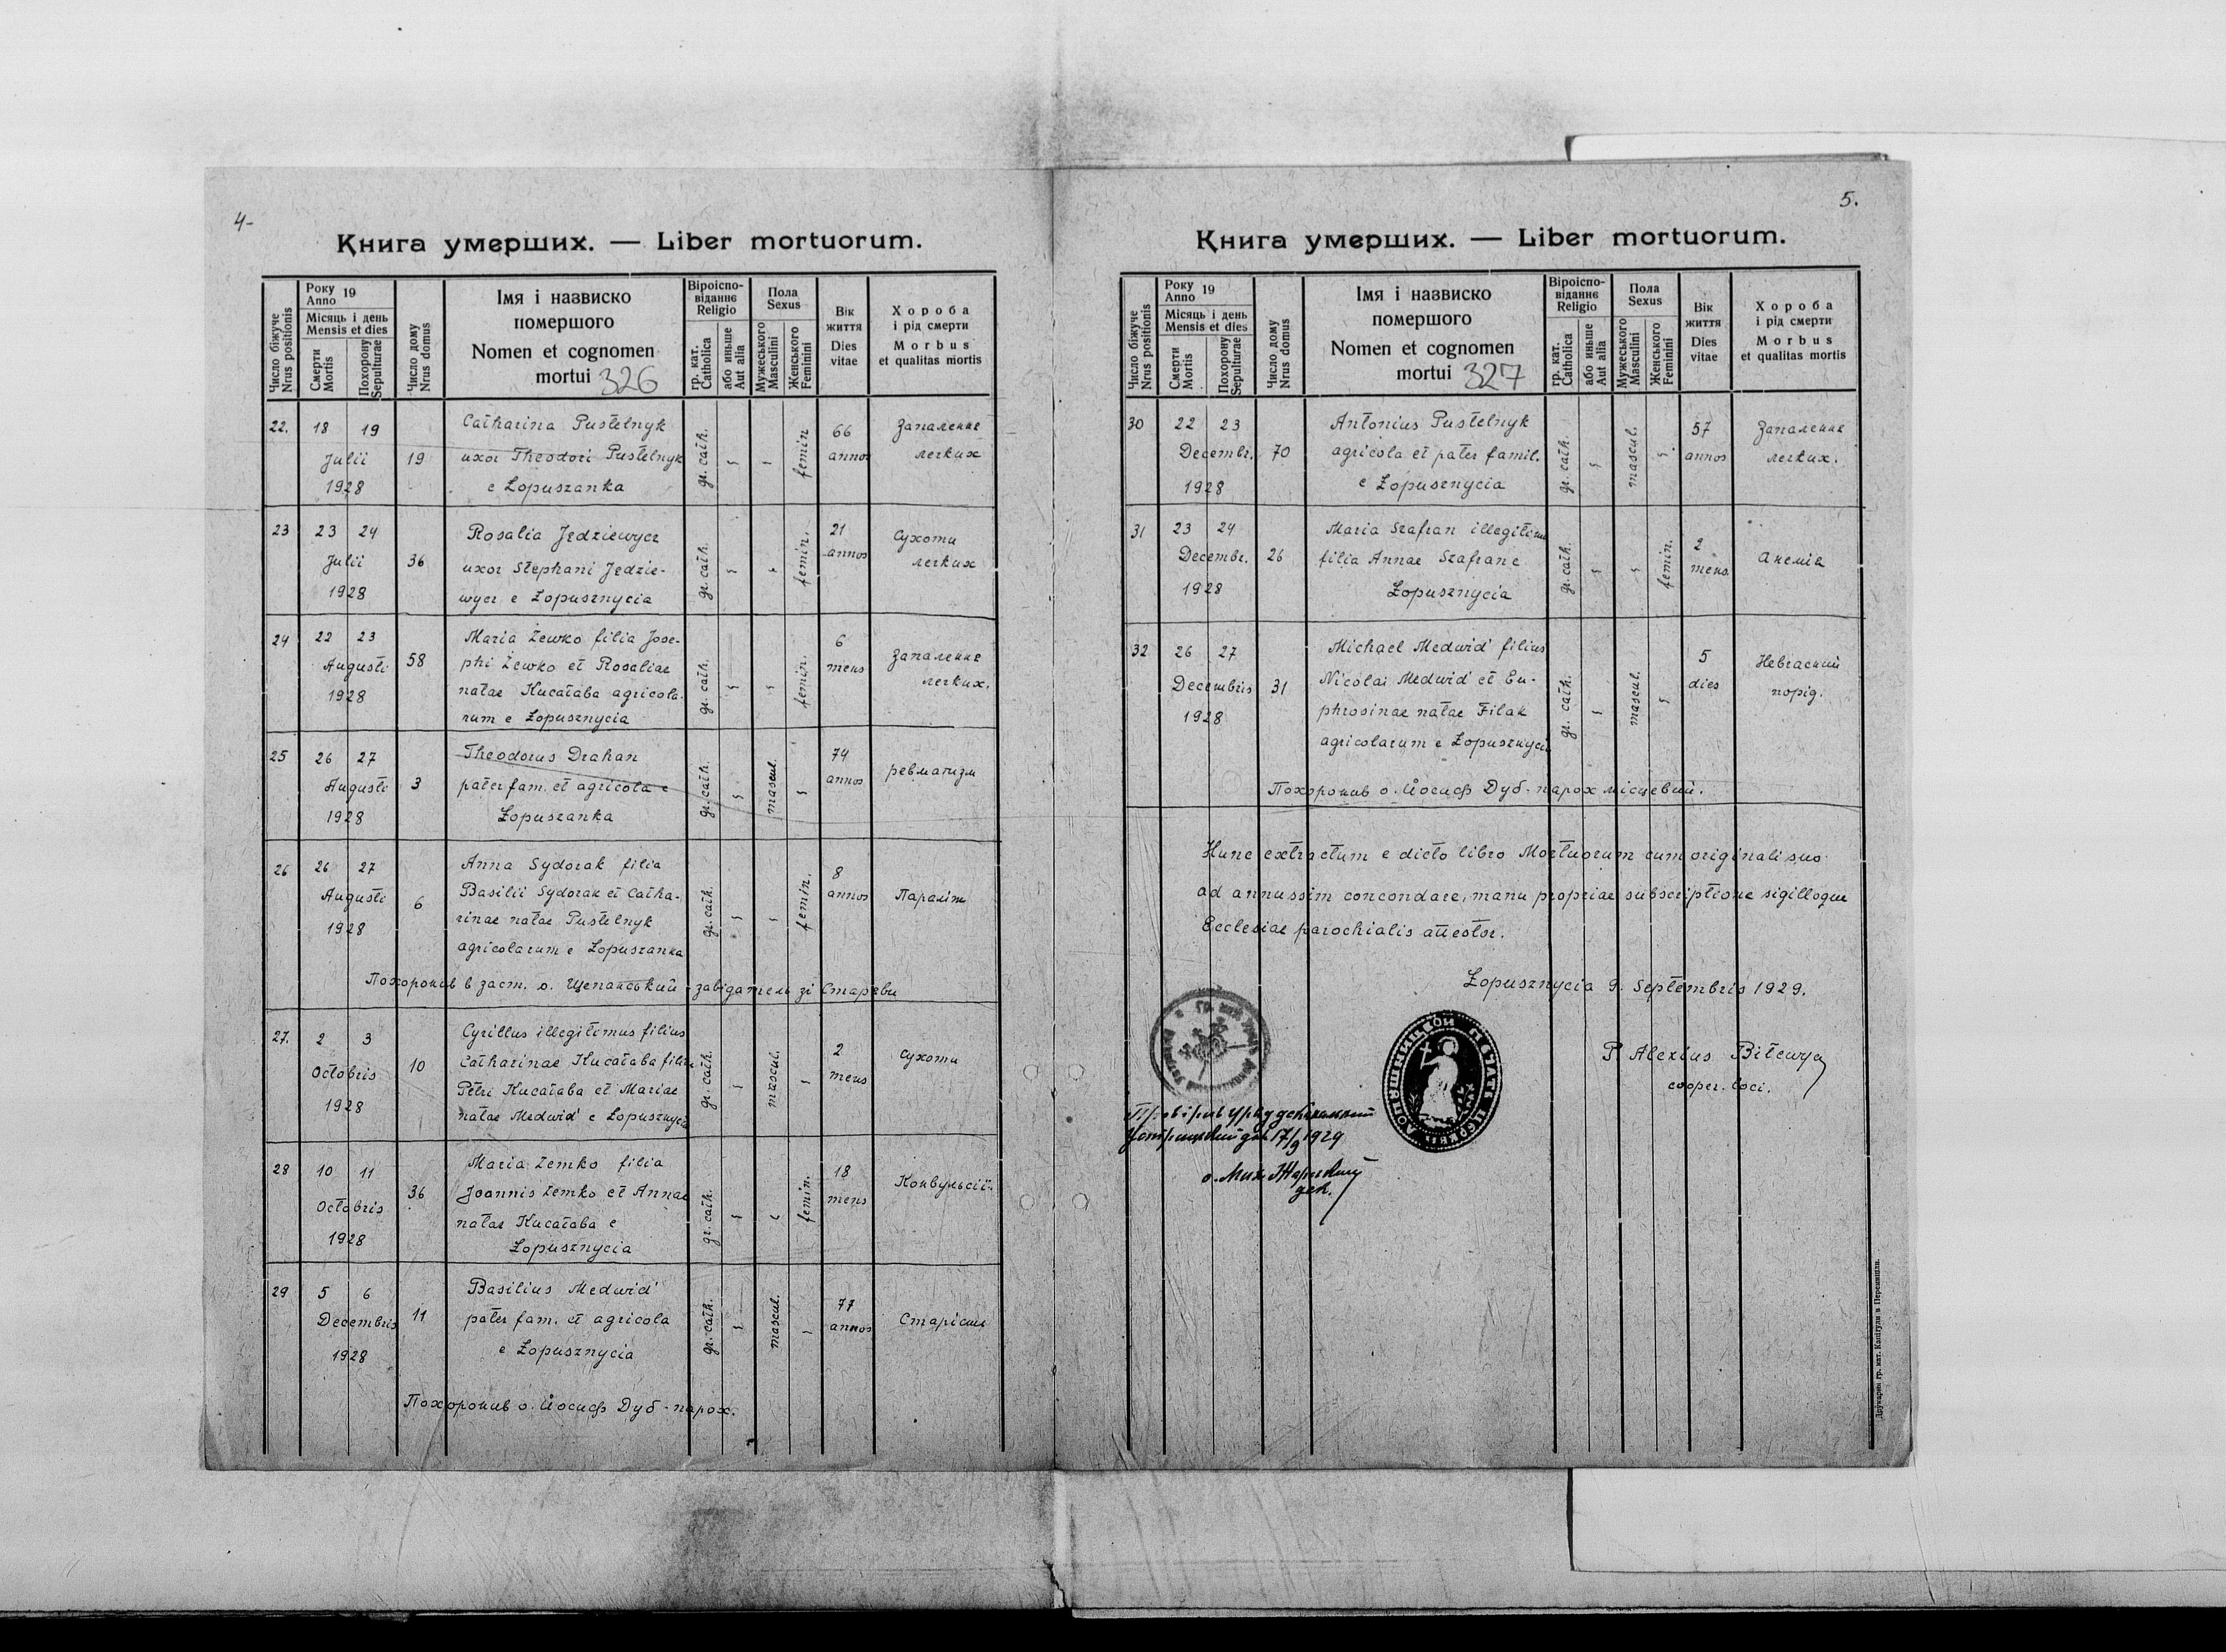 4-
Книга умерших. — Liber mortuorum.
Число біжуче
Nrus positionis
Року
Anno 19
Місяць і день
Mensis et dies
Смерти
Mortis
Похорону
Sepulturae
Число дому
Nrus domus
Імя і назвиско
помершого
Nomen et cognomen
mortui 326
Віроіспо-
віданнє
Religio
гр. кат.
Catholica
або инше
Aut alia
Пола
Sexus
Мужеського
Masculini
Женського
Feminini
Вік
життя
Dies
vitae
Хороба
і рід смерти
Morbus
et qualitas mortis
22. 18 19 Julii 1928 19
Catharina Pustelnyk
uxor Theodori Pustelnyk
e Łopuszanka
gr. cath. femin 66 annos
Запаленнє
легких
23 23 24 Julii 1928 36
Rosalia Jędziewycz
uxor Stephani Jędzie-
wycz e Łopusznycia
gr. cath. femin. 21 annos
Сухоти
легких
24 22 23 Augusti 1928 58
Maria Żewko filia Jose-
phi Żewko et Rosaliae
natae Kucałaba agricola-
rum e Łopusznycia
gr. cath. femin. 6 mens
Запаленнє
легких.
25 26 27 Augusti 1928 3
Theodorus Drahan
pater fam. et agricola e
Łopuszanka
gr. cath. mascul. 74 annos
ревматизм
26 26 27 Augusti 1928 6
Anna Sydorak filia
Basilii Sydorak et Catha-
rinae natae Pustelnyk
agricolarum e Łopuszanka
gr. cath. femin. 8 annos
Параліж
Похоронив в заст. о. Щепанський - завідатель зі Стареви
27. 2 3 Octobris 1928 10
Cyrillus illegitimus filius
Catharinae Kucałaba filiae
Petri Kucałaba et Mariae
natae Medwid' e Łopusznycia
gr. cath. mascul. 2 mens
Сухоти
28 10 11 Octobris 1928 36
Maria Zemko filia
Joannis Zemko et Annae
natae Kucałaba e
Łopusznycia
gr. cath. femin. 18 mens
Конвульсії
29 5 6 Decembris 1928 11
Basilius Medwid'
pater fam. et agricola
e Łopusznycia
gr. cath. mascul. 77 annos
Старість
Похоронив о. Йосиф Дуб - парох.
5.
Книга умерших. — Liber mortuorum.
Число біжуче
Nrus positionis
Року
Anno 19
Місяць і день
Mensis et dies
Смерти
Mortis
Похорону
Sepulturae
Число дому
Nrus domus
Імя і назвиско
помершого
Nomen et cognomen
mortui 327
Віроіспо-
віданнє
Religio
гр. кат.
Catholica
або инше
Aut alia
Пола
Sexus
Мужеського
Masculini
Женського
Feminini
Вік
життя
Dies
vitae
Хороба
і рід смерти
Morbus
et qualitas mortis
30 22 23 Decembr. 1928 70
Antonius Pustelnyk
agricola et pater famil.
e Łopusznycia
gr. cath. mascul. 57 annos
Запаленнє
легких.
31 23 24 Decembr. 1928 26
Maria Szafran illegitima
filia Annae Szafran e
Łopusznycia
gr. cath. femin. 2 mens.
Анемія
32 26 27 Decembris 1928 31
Michael Medwid' filius
Nicolai Medwid' et Eu-
phrosinae natae Filak
agricolarum e Łopusznycia
gr. cath. mascul. 5 dies
Невчасний
порід.
Похоронив о. Йосиф Дуб - парох місцевий.
Hunc extractum e dicto libro Mortuorum cum originali suo
ad annussim concondare, manu propriae subscriptione sigilloque
Ecclesiae parochialis attestor.
Łopusznycia 9. Septembris 1929.
P. Alexius Bilewycz
cooper. loci.
17/9 1929
Друкарня гр. кат. Капітули в Перемишли.